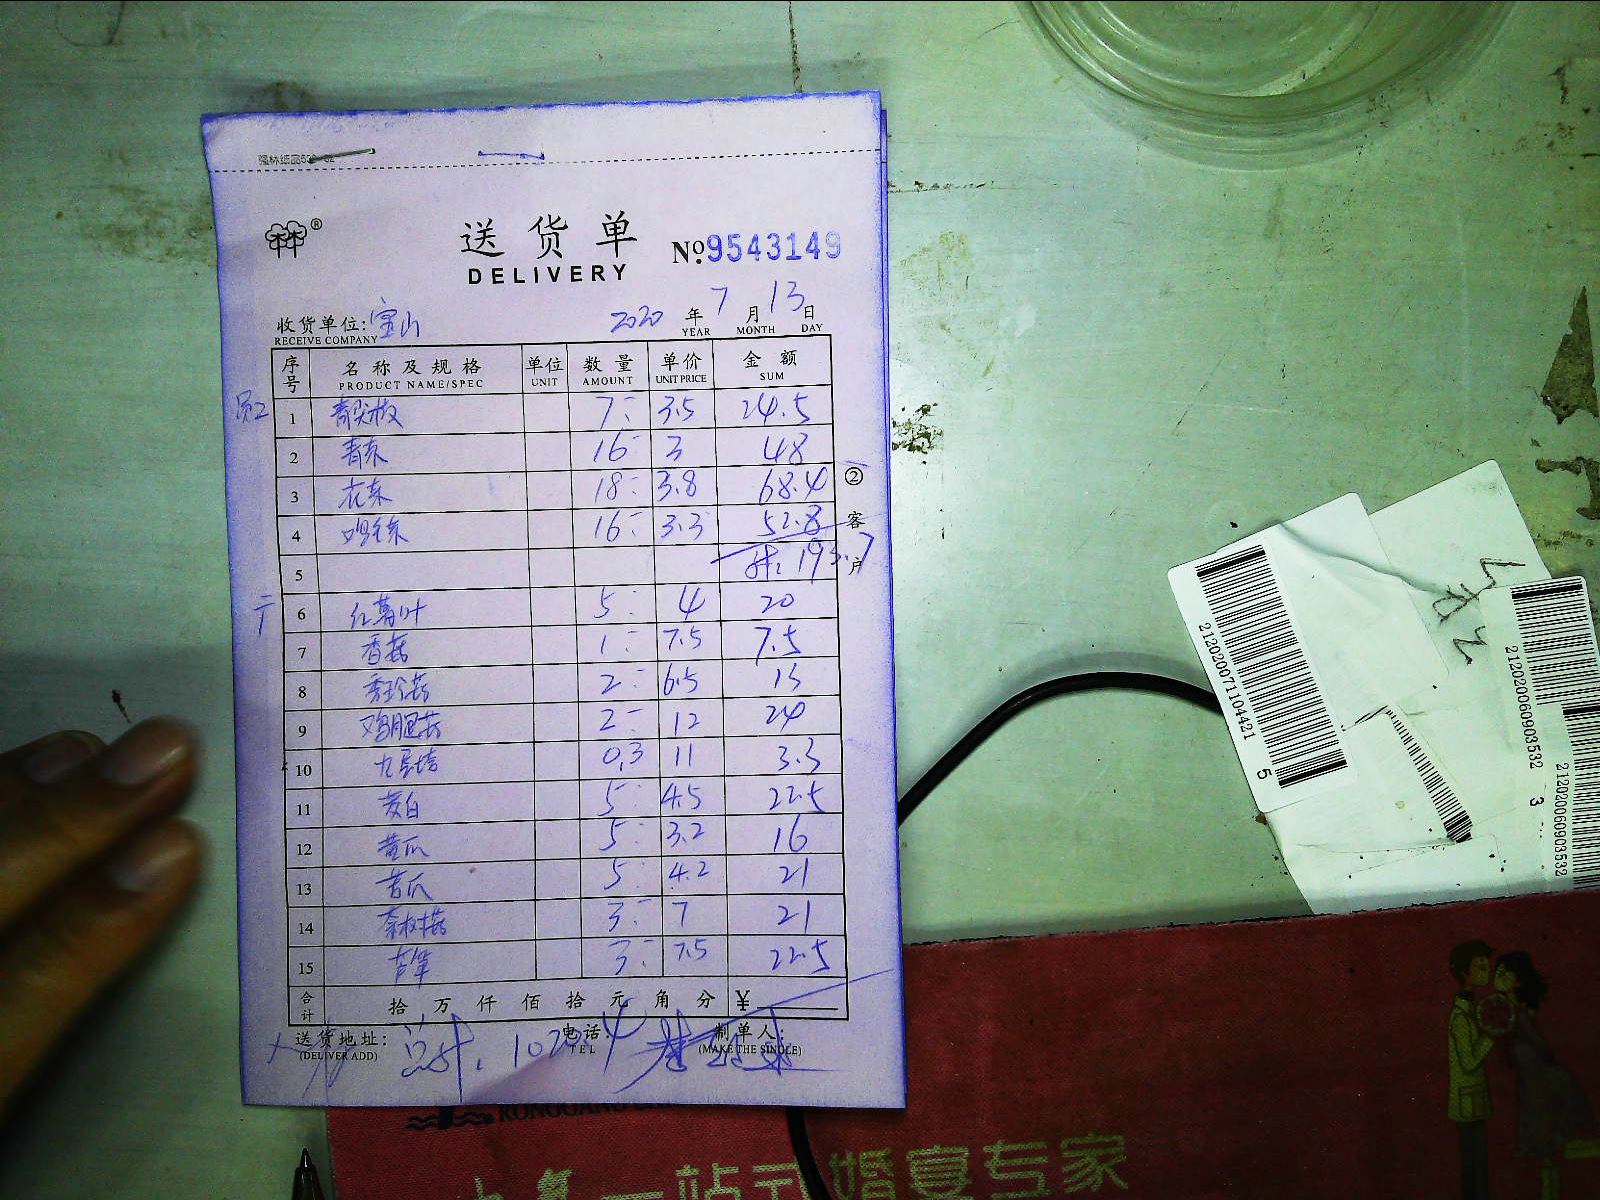 送货单
DELIVERY
№9543149
收货单位:宝山 2020 年 7 月 13 日
RECEIVE COMPANY YEAR MONTH DAY
序号 名称及规格 单位 数量 单价 金额
PRODUCT NAME/SPEC UNIT AMOUNT UNIT PRICE SUM
员工 1 青尖椒 7 3.5 24.5
2 青东 16 3 48
3 花东 18 3.8 68.4
4 16 3.3 52.8
5 计: 193.7
6 红薯叶 5 4 20
7 香菇 1 7.5 7.5
8 秀珍菇 2 6.5 13
9 鸡腿菇 2 12 24
10 九层塔 0.3 11 3.3
11 茭白 5 4.5 22.5
12 黄瓜 5 3.2 16
13 苦瓜 5 4.2 21
14 茶树菇 3 7 21
15 芦笋 3 7.5 22.5
合计 拾 万 仟 佰 拾 元 角 分 ¥
送货地址: 电话: 制单人:
(DELIVER ADD) TEL (MAKE THE SINGLE)
总计:
②客户
2120200711044421 5
212020060903532 3
212020060903532
一站式婚宴专家